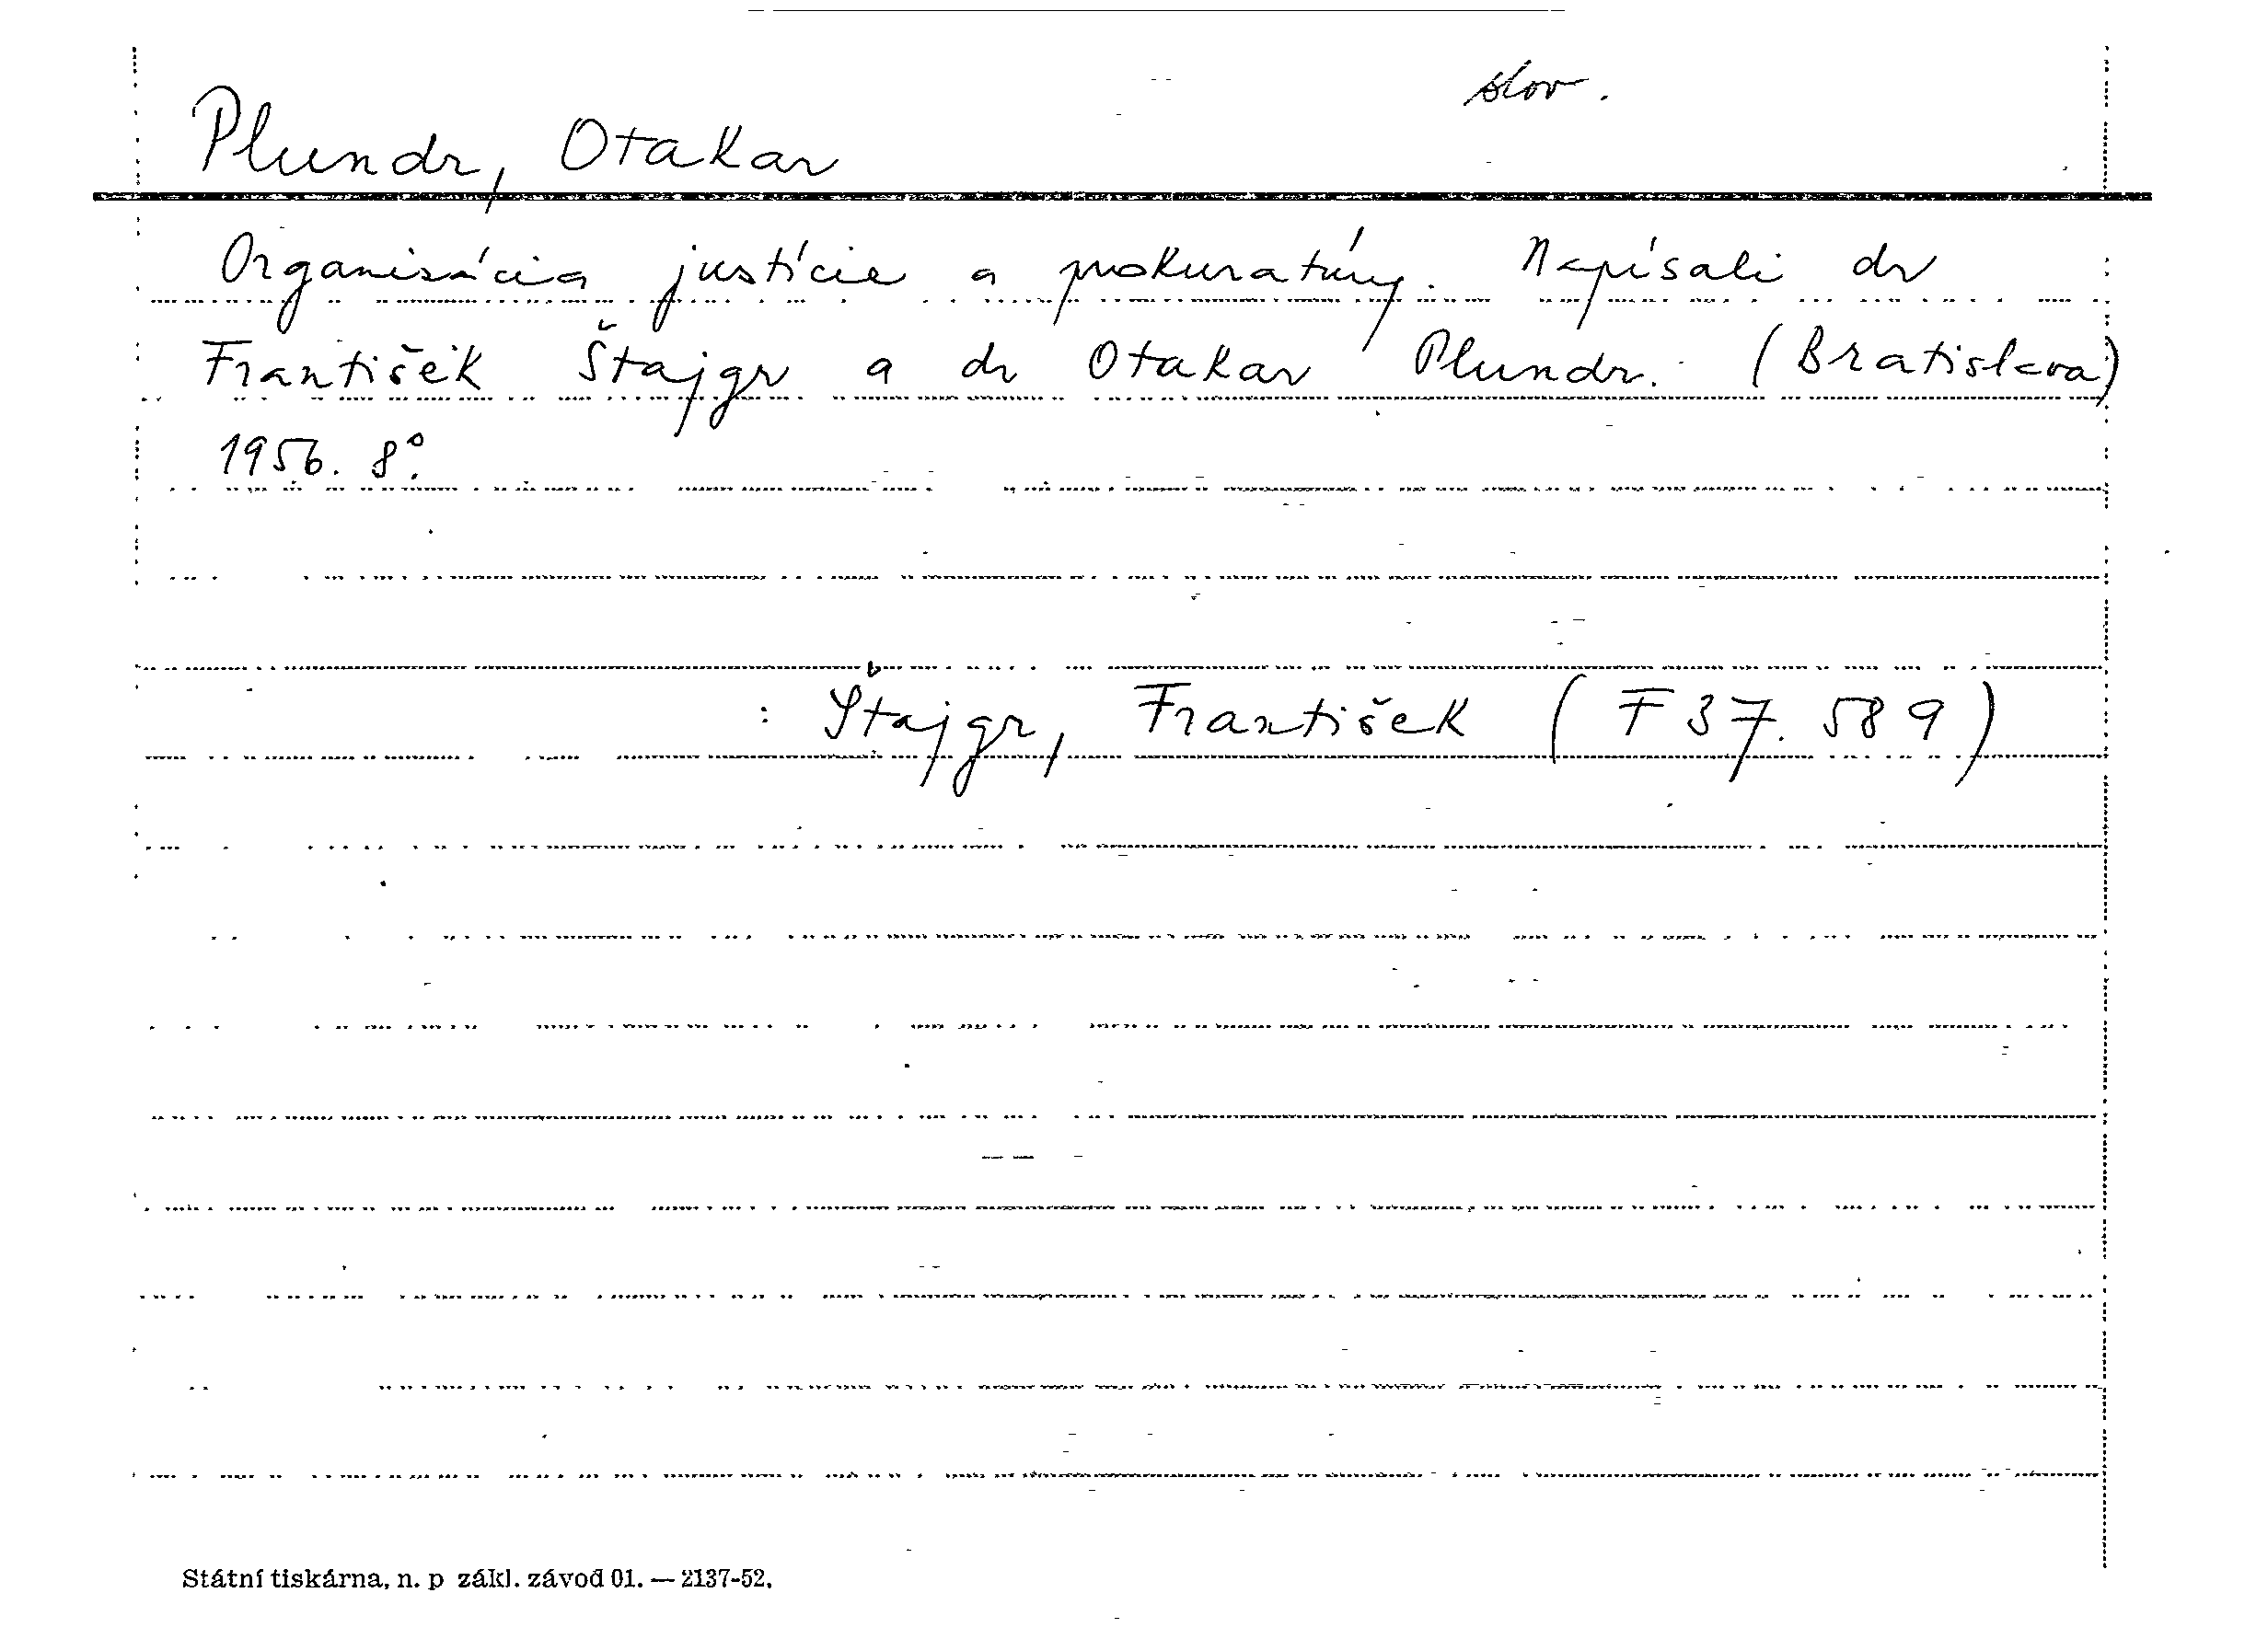 slov.
Plundr, Otakar
Organisácia justície a prokuratúry. Napísali dr
František Štajgr a dr Otakar Plundr. (Bratislava)
1956. 8°.
: Štajgr, František (F 37.589)
Státní tiskárna, n. p. zákl. závod 01. — 2137-52.